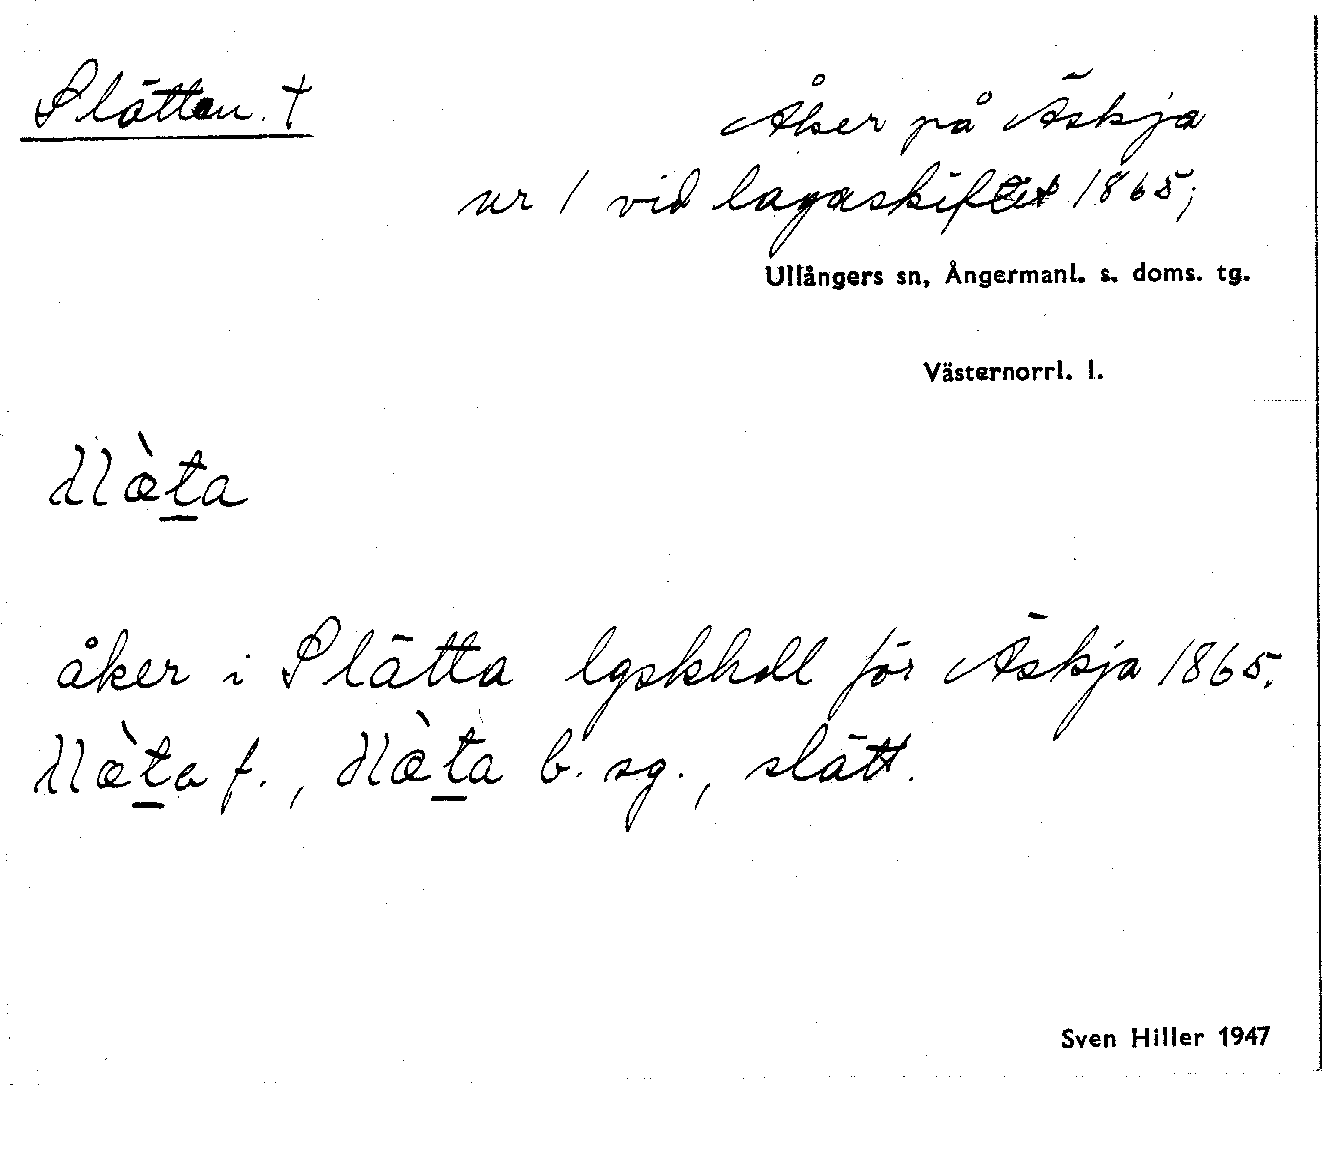 Slätten. †
Åker på Äskja
nr 1 vid lagaskiftet 1865;
Ullångers sn, Ångermanl. s. doms. tg.
Västernorrl. l.
åker i Slätta lgskholl för Äskja 1865.
f., b. sg., slätt.
Sven Hiller 1947